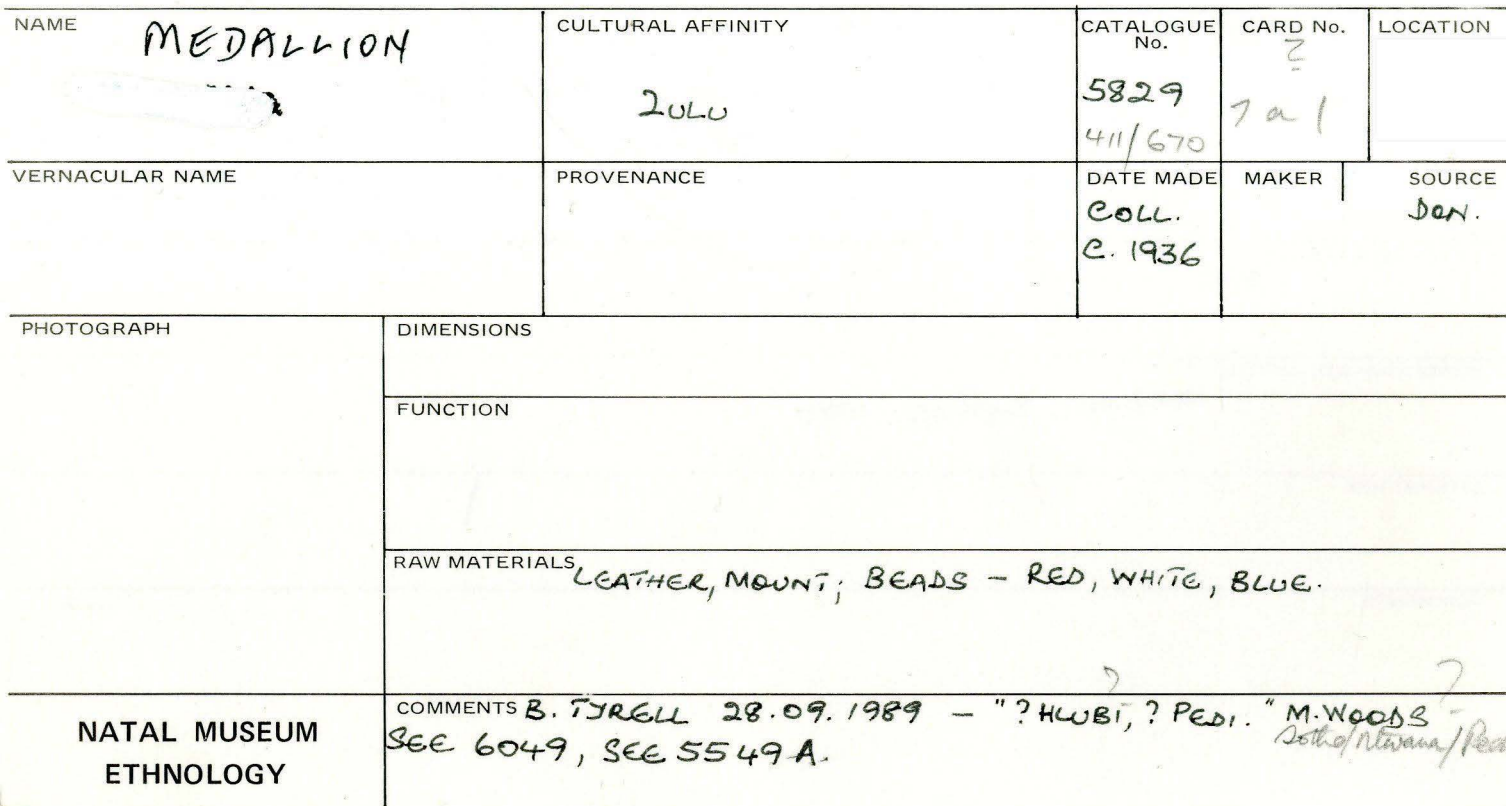 NAME
MEDALLION
CULTURAL AFFINITY
ZULU
CATALOGUE No.
5829
411/670
CARD No.
?
7 a 1
LOCATION
VERNACULAR NAME
PROVENANCE
DATE MADE
COLL.
C. 1936
MAKER
SOURCE
DON.
PHOTOGRAPH
DIMENSIONS
FUNCTION
RAW MATERIALS LEATHER, MOUNT; BEADS – RED, WHITE, BLUE.
NATAL MUSEUM
ETHNOLOGY
COMMENTS B. TYRELL 28.09.1989 – "? HLUBI, ? PEDI." M. WOODS
Sotho/Ntwana/
SEE 6049, SEE 5549A.